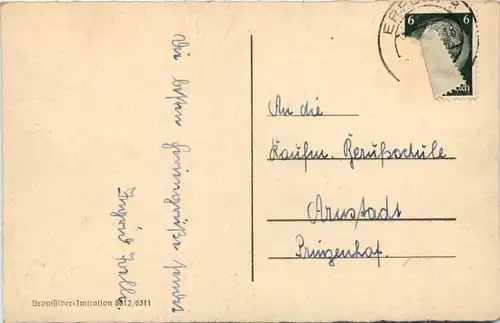 Die besten Feriengrüße sendet
Ingrid
An die
Kaufm. Berufsschule
Arnstadt
Prinzenhof.
6 6
Bromsilber-Imitation 6312/6311